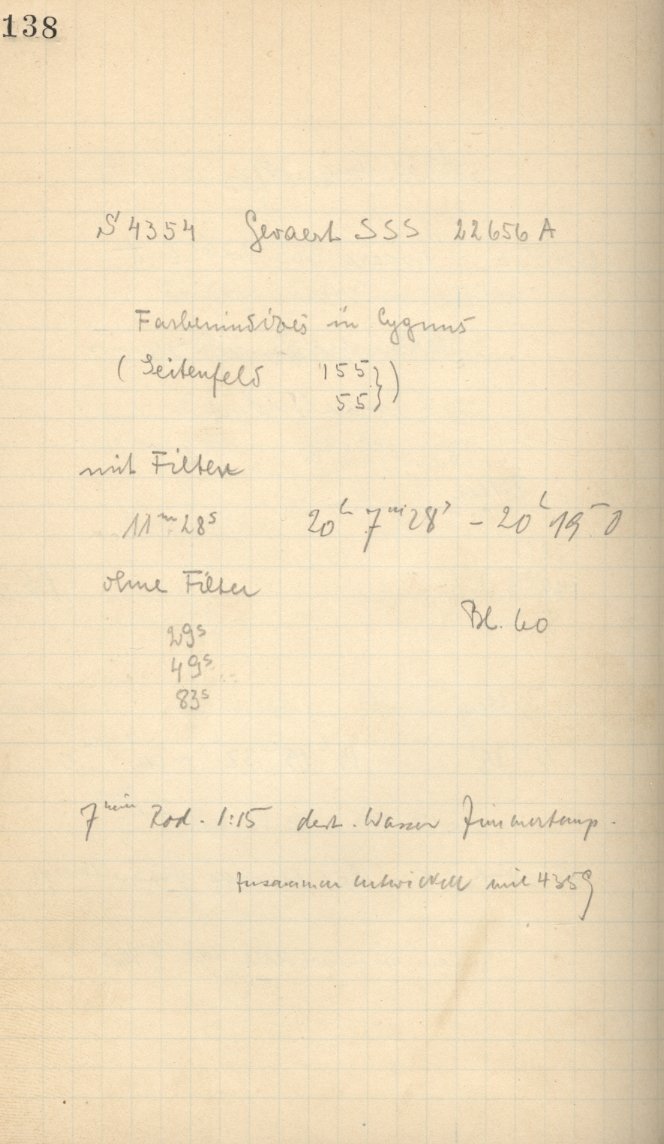 138
S 4354 Gevaert SSS 22656 A
Farbenindizes in Cygnus
(Seitenfeld 155
55})
mit Filter
11ᵐ 28ˢ 20ʰ 7ᵐ 28ˢ – 20ʰ 19ᵐ 0
ohne Filter
29ˢ
49ˢ
83ˢ
Bl. 60
7ᵐⁱⁿ Rod. 1:15 dest. Wasser Zimmertemp.
zusammen entwickelt mit 4359